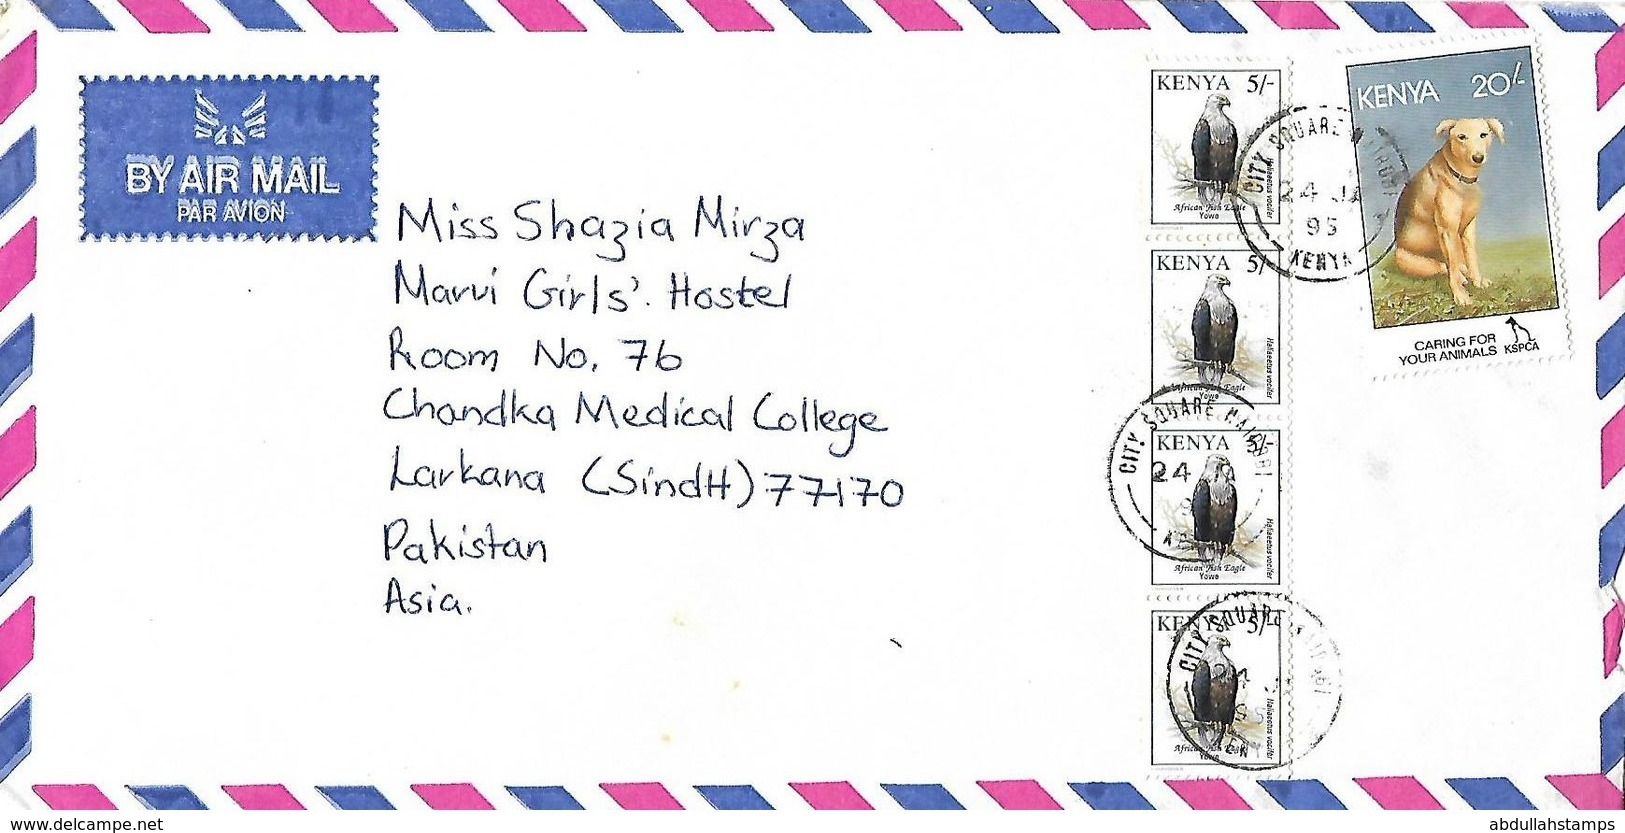 BY AIR MAIL
PAR AVION
Miss Shazia Mirza
Marvi Girls'. Hostel
Room No. 76
Chandka Medical College
Larkana (SindH) 77170
Pakistan
Asia.
KENYA 5/-
Haliaeetus vocifer
African Fish Eagle
Yowe
KENYA 5/-
Haliaeetus vocifer
African Fish Eagle
Yowe
KENYA 5/-
Haliaeetus vocifer
African Fish Eagle
Yowe
KENYA 5/-
Haliaeetus vocifer
African Fish Eagle
Yowe
KENYA 20/-
CARING FOR
YOUR ANIMALS KSPCA
CITY SQUARE
24 JA
95
KENYA
CITY SQUARE NAIROBI
24 JA
CITY SQUARE NAIROBI
24
www.delcampe.net
abdullahstamps